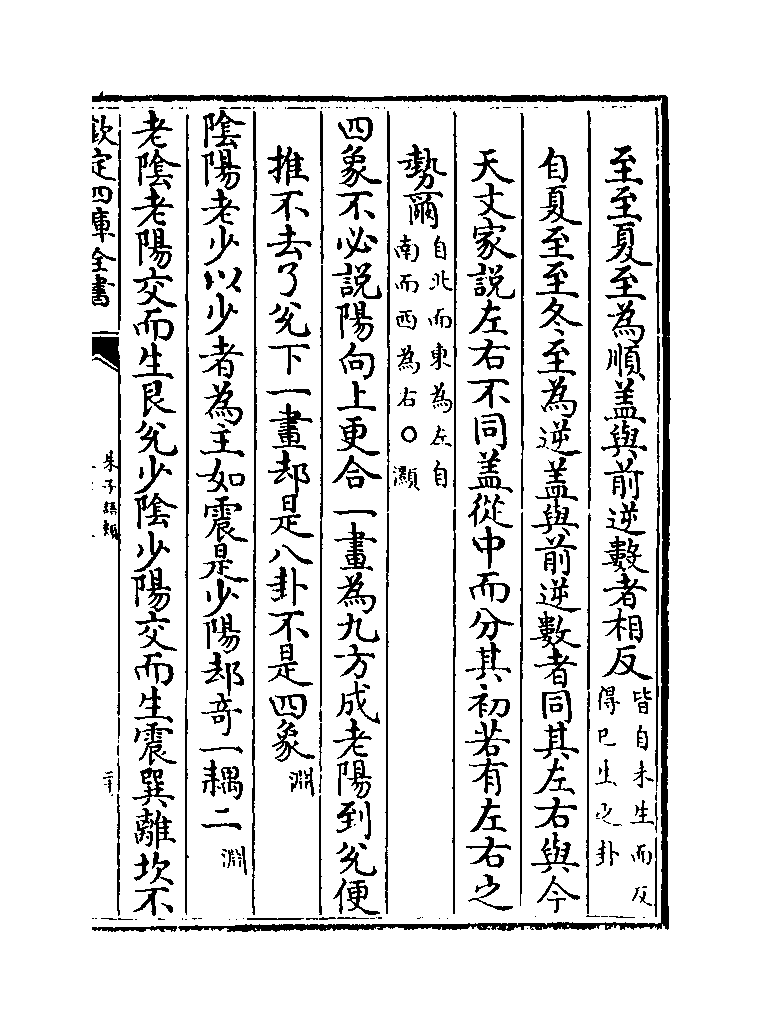 至至夏至為順盖與前逆數者相反皆自未生而反得巳生之卦
自夏至至冬至為逆盖與前逆數者同其左右與今
天文家説左右不同盖從中而分其初若有左右之
勢爾自北而東為左自南而西為右○灝
四象不必説陽向上更合一畫為九方成老陽到兊便
推不去了兊下一畫却是八卦不是四象淵
陰陽老少以少者為主如震是少陽却奇一耦二淵
老陰老陽交而生艮兊少陰少陽交而生震巽離坎不
欽定四庫全書
朱子語類